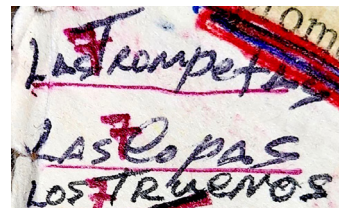 Las 7 Trompetas
Las 7 Copas
Los 7 Truenos